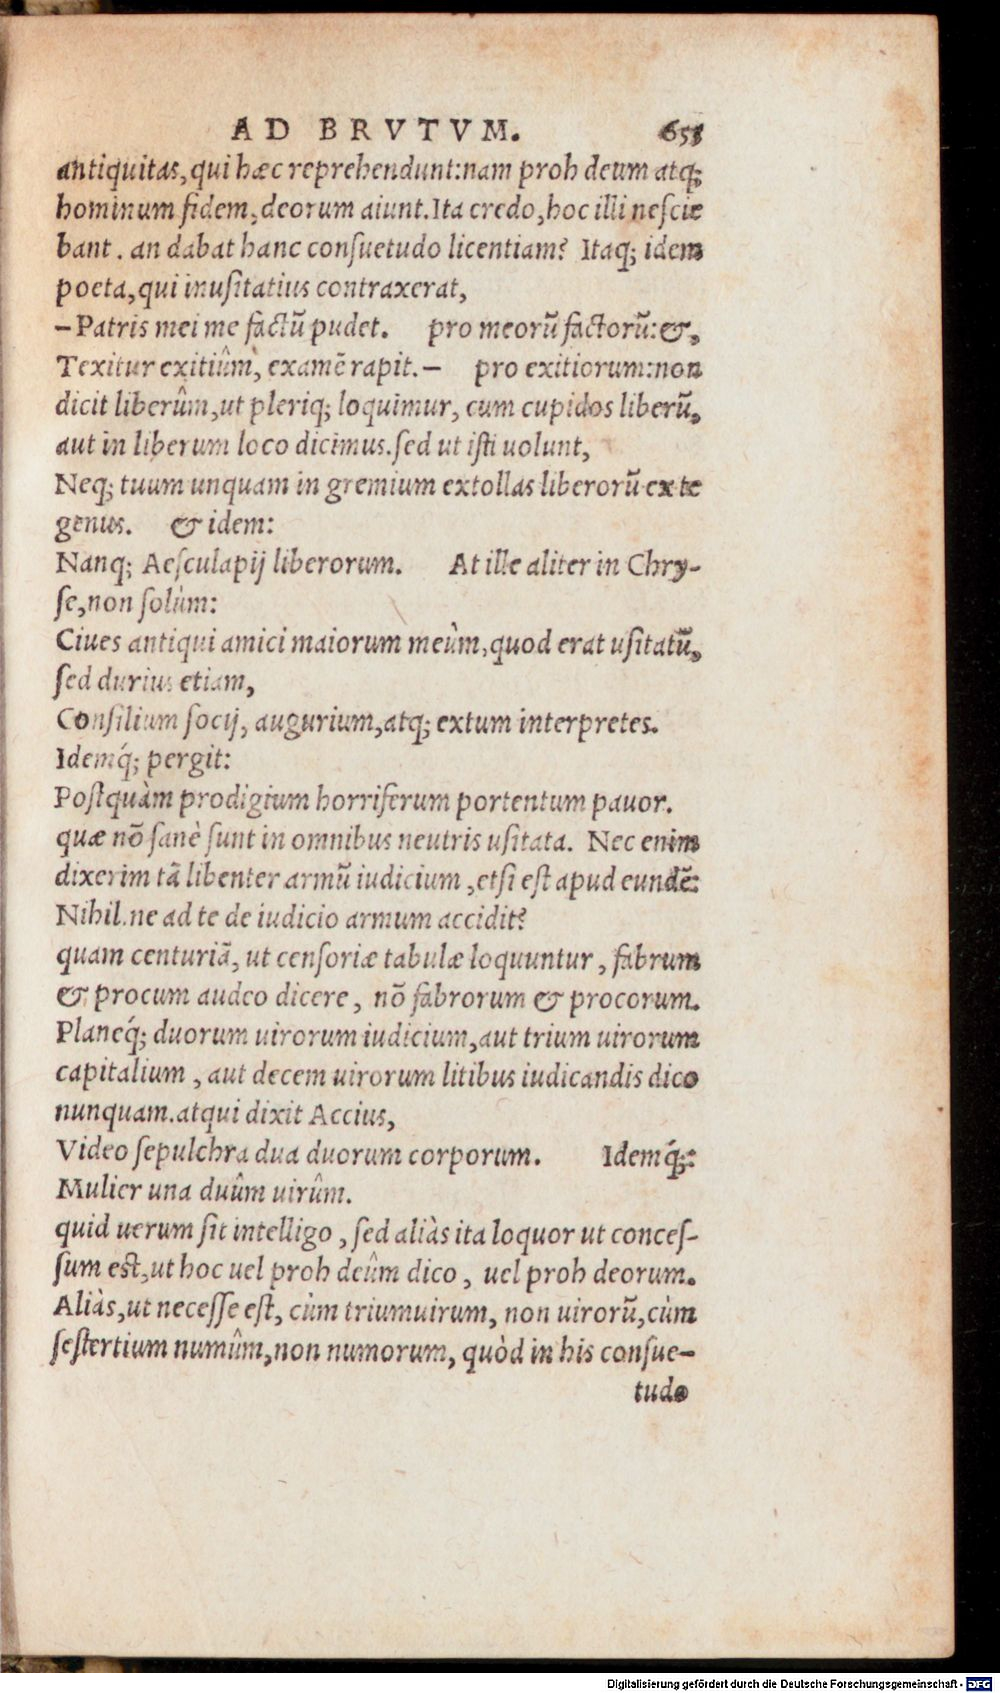 AD BRVTVM. 653
antiquitas, qui hæc reprehendunt: nam proh deum atq;
hominum fidem, deorum aiunt. Ita credo, hoc illi nescie
bant. an dabat hanc consuetudo licentiam? Itaq; idem
poeta, qui inusitatius contraxerat,
– Patris mei me factũ pudet. pro meorũ factorũ: &,
Texitur exitiûm, examẽ rapit. – pro exitiorum: non
dicit liberûm, ut pleriq; loquimur, cum cupidos liberũ,
aut in liberum loco dicimus. sed ut isti uolunt,
Neq; tuum unquam in gremium extollas liberorũ ex te
genus. & idem:
Nanq; Aesculapij liberorum. At ille aliter in Chry-
se, non solùm:
Ciues antiqui amici maiorum meûm, quod erat usitatũ,
sed durius etiam,
Consilium socij, augurium, atq; extum interpretes.
Idemq́; pergit:
Postquàm prodigium horriferum portentum pauor.
quæ nõ sanè sunt in omnibus neutris usitata. Nec enim
dixerim tã libenter armũ iudicium, etsi est apud eundẽ:
Nihil.ne ad te de iudicio armum accidit?
quam centuriã, ut censoriæ tabulæ loquuntur, fabrum
& procum audeo dicere, nõ fabrorum & procorum.
Planeq́; duorum uirorum iudicium, aut trium uirorum
capitalium, aut decem uirorum litibus iudicandis dico
nunquam. atqui dixit Accius,
Video sepulchra dua duorum corporum. Idemq́;:
Mulier una duûm uirûm.
quid uerum sit intelligo, sed aliàs ita loquor ut conces-
sum est, ut hoc uel proh deûm dico, uel proh deorum.
Aliàs, ut necesse est, cùm triumuirum, non uirorũ, cùm
sestertium numûm, non numorum, quòd in his consue-
tudo
Digitalisierung gefördert durch die Deutsche Forschungsgemeinschaft - DFG